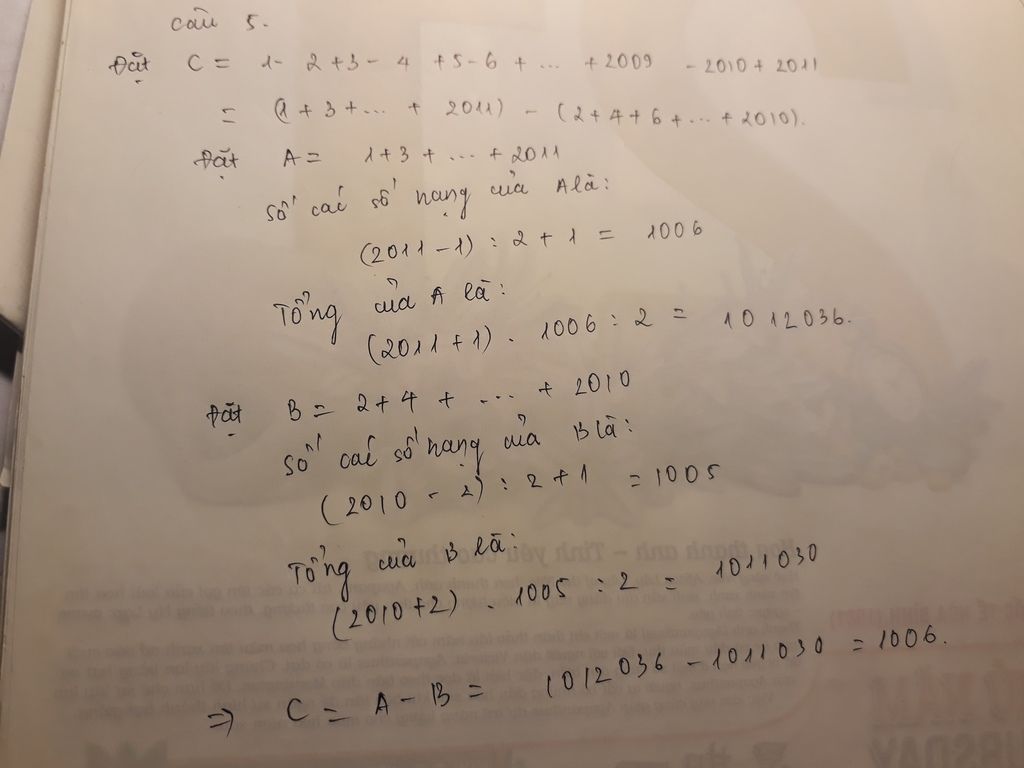 Câu 5.
Đặt C = 1 - 2 + 3 - 4 + 5 - 6 + ... + 2009 - 2010 + 2011
= (1 + 3 + ... + 2011) - (2 + 4 + 6 + ... + 2010).
Đặt A = 1 + 3 + ... + 2011
Số các số hạng của A là:
(2011 - 1) : 2 + 1 = 1006
Tổng của A là:
(2011 + 1) . 1006 : 2 = 1012036.
Đặt B = 2 + 4 + ... + 2010
Số các số hạng của B là:
(2010 - 2) : 2 + 1 = 1005
Tổng của B là:
(2010 + 2) . 1005 : 2 = 1011030
⇒ C = A - B = 1012036 - 1011030 = 1006.